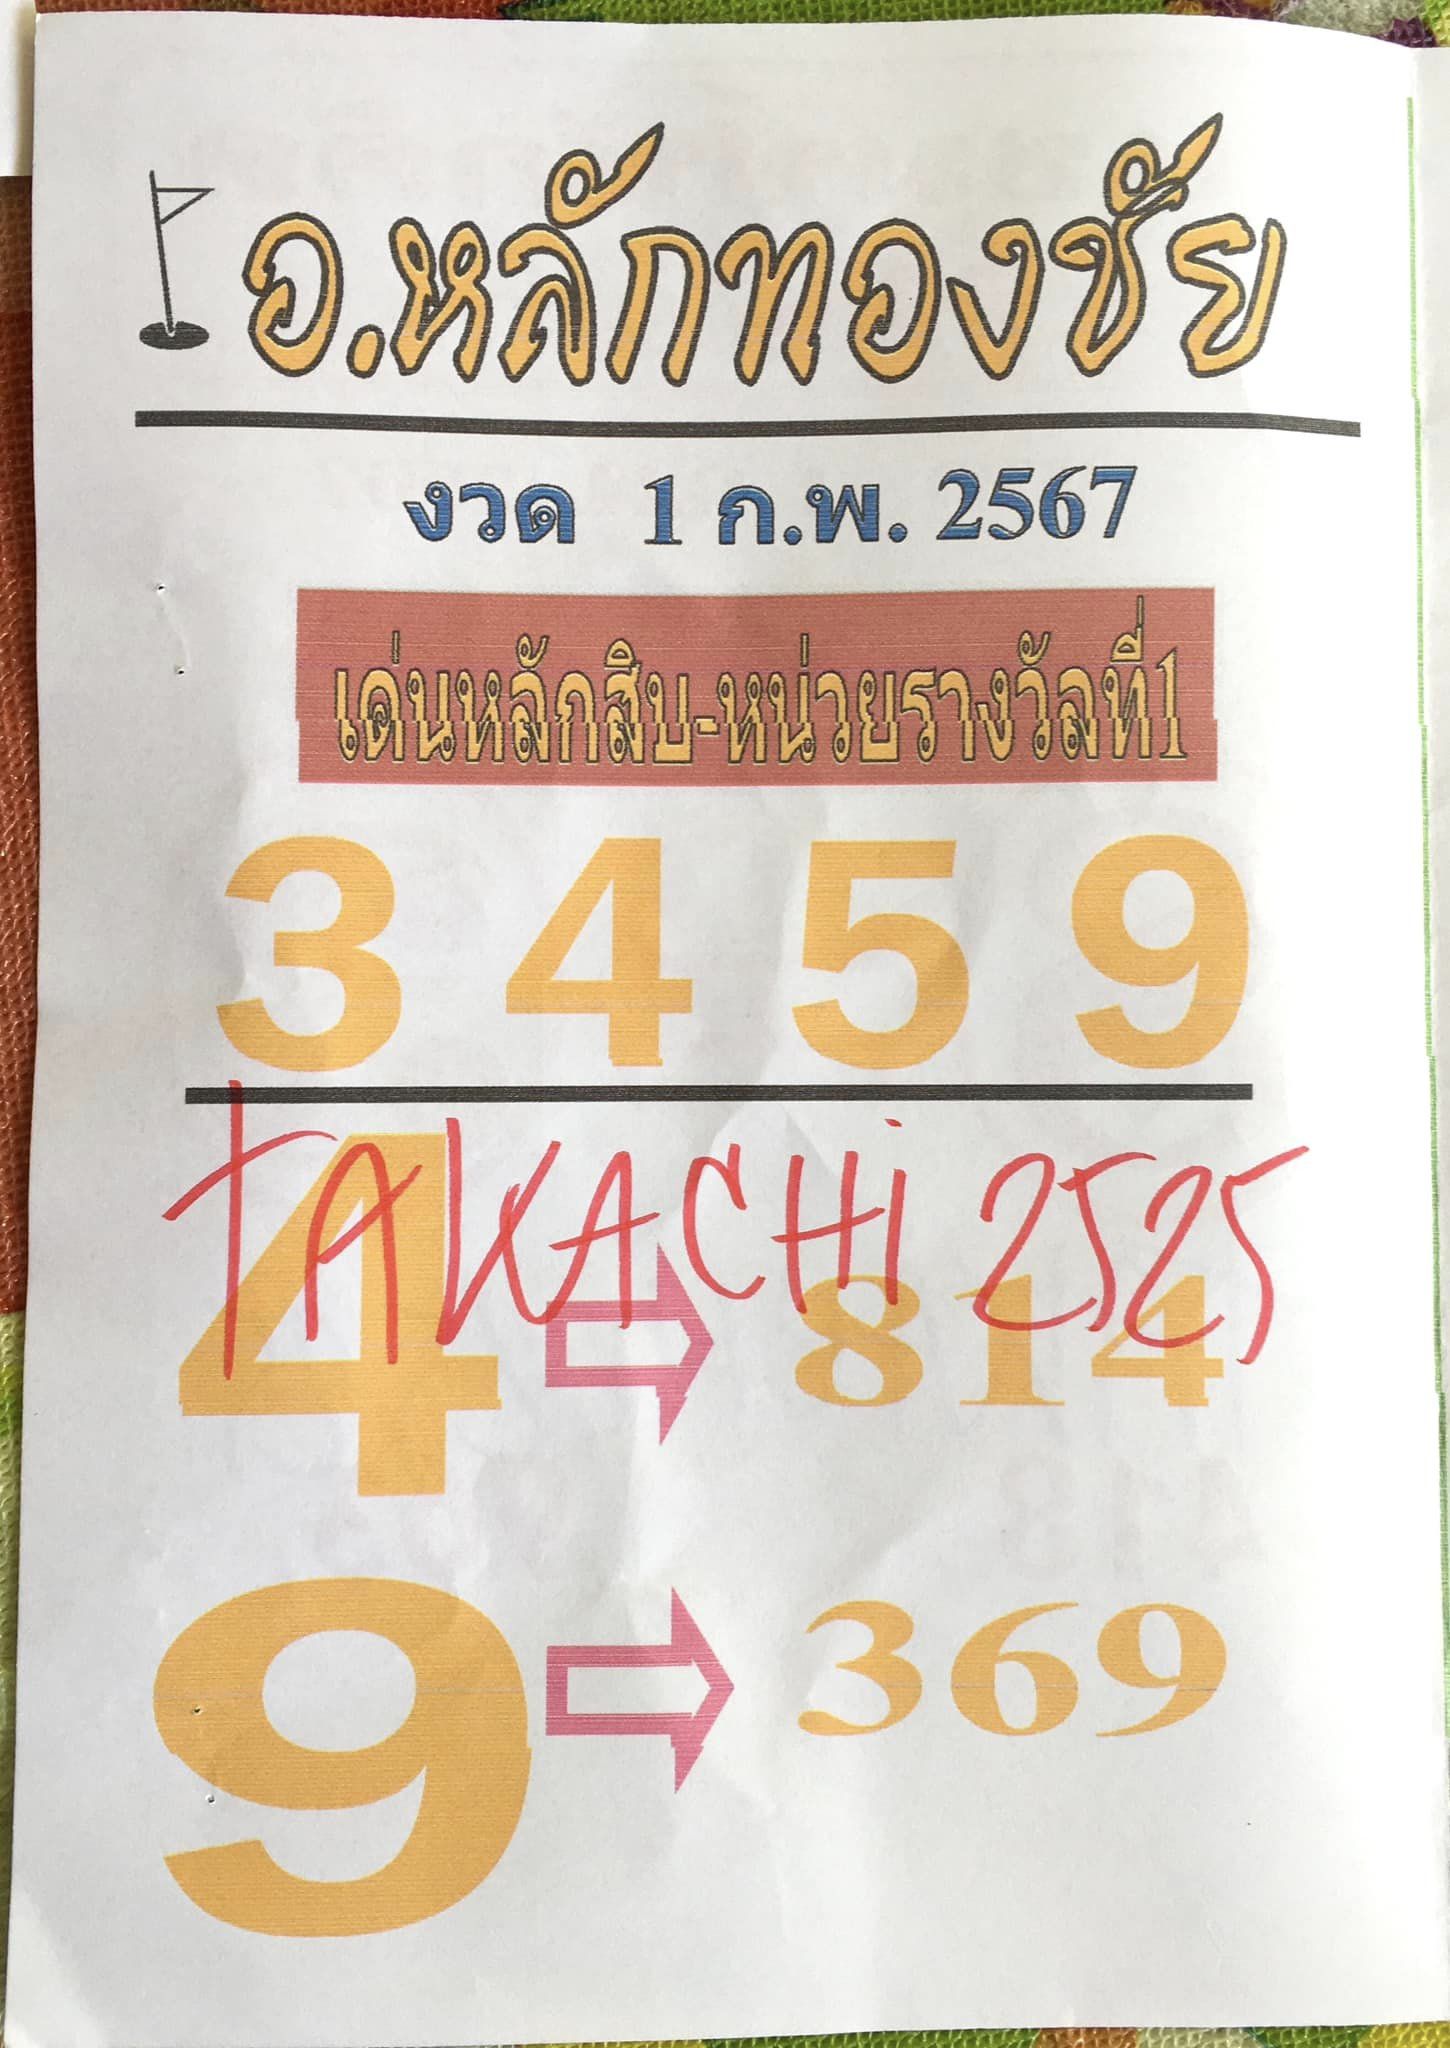 อ.หลักทองชัย
งวด 1 ก.พ. 2567
เด่นหลักสิบ-หน่วยรางวัลที่1
3 4 5 9
TAKACHi 2525
4 814
9 369